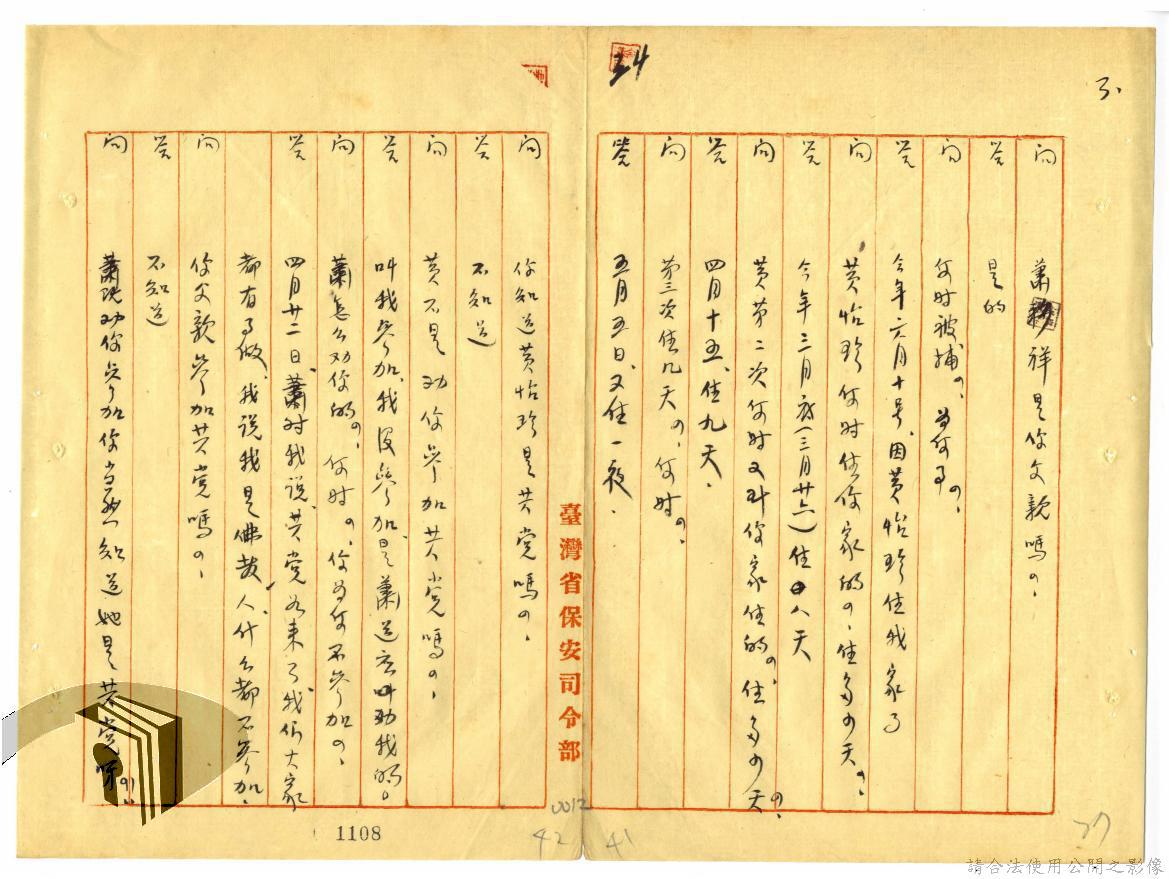 3.
34
問 蕭祥是你父親嗎？
答 是的
問 何时被捕？為何事？
答 今年六月十号、因黄怡珍住我家事
問 黄怡珍何时住你家的？住多少天？
答 今年三月底(三月廿六)住八天
問 黄第二次何时又到你家住的？住多少天？
答 四月十五、住九天.
問 第三次住几天？何时？
答 五月五日、又住一夜.
臺灣省保安司令部
問 你知道黄怡珍是共党嗎？
答 不知道
問 黄不是劝你参加共党嗎？
答 叫我参加、我沒参加、是蕭道应叫劝我的。
問 蕭怎么劝你的？何时？你為何不参加？
答 四月廿二日、蕭对我说、共党如来了、我们大家
都有事做、我说我是佛教人、什么都不参加.
問 你父親参加共党嗎？
答 不知道
問 蕭既劝你参加你当然知道她是共党呀？
0012
42
41
37
1108
請合法使用公開之影像